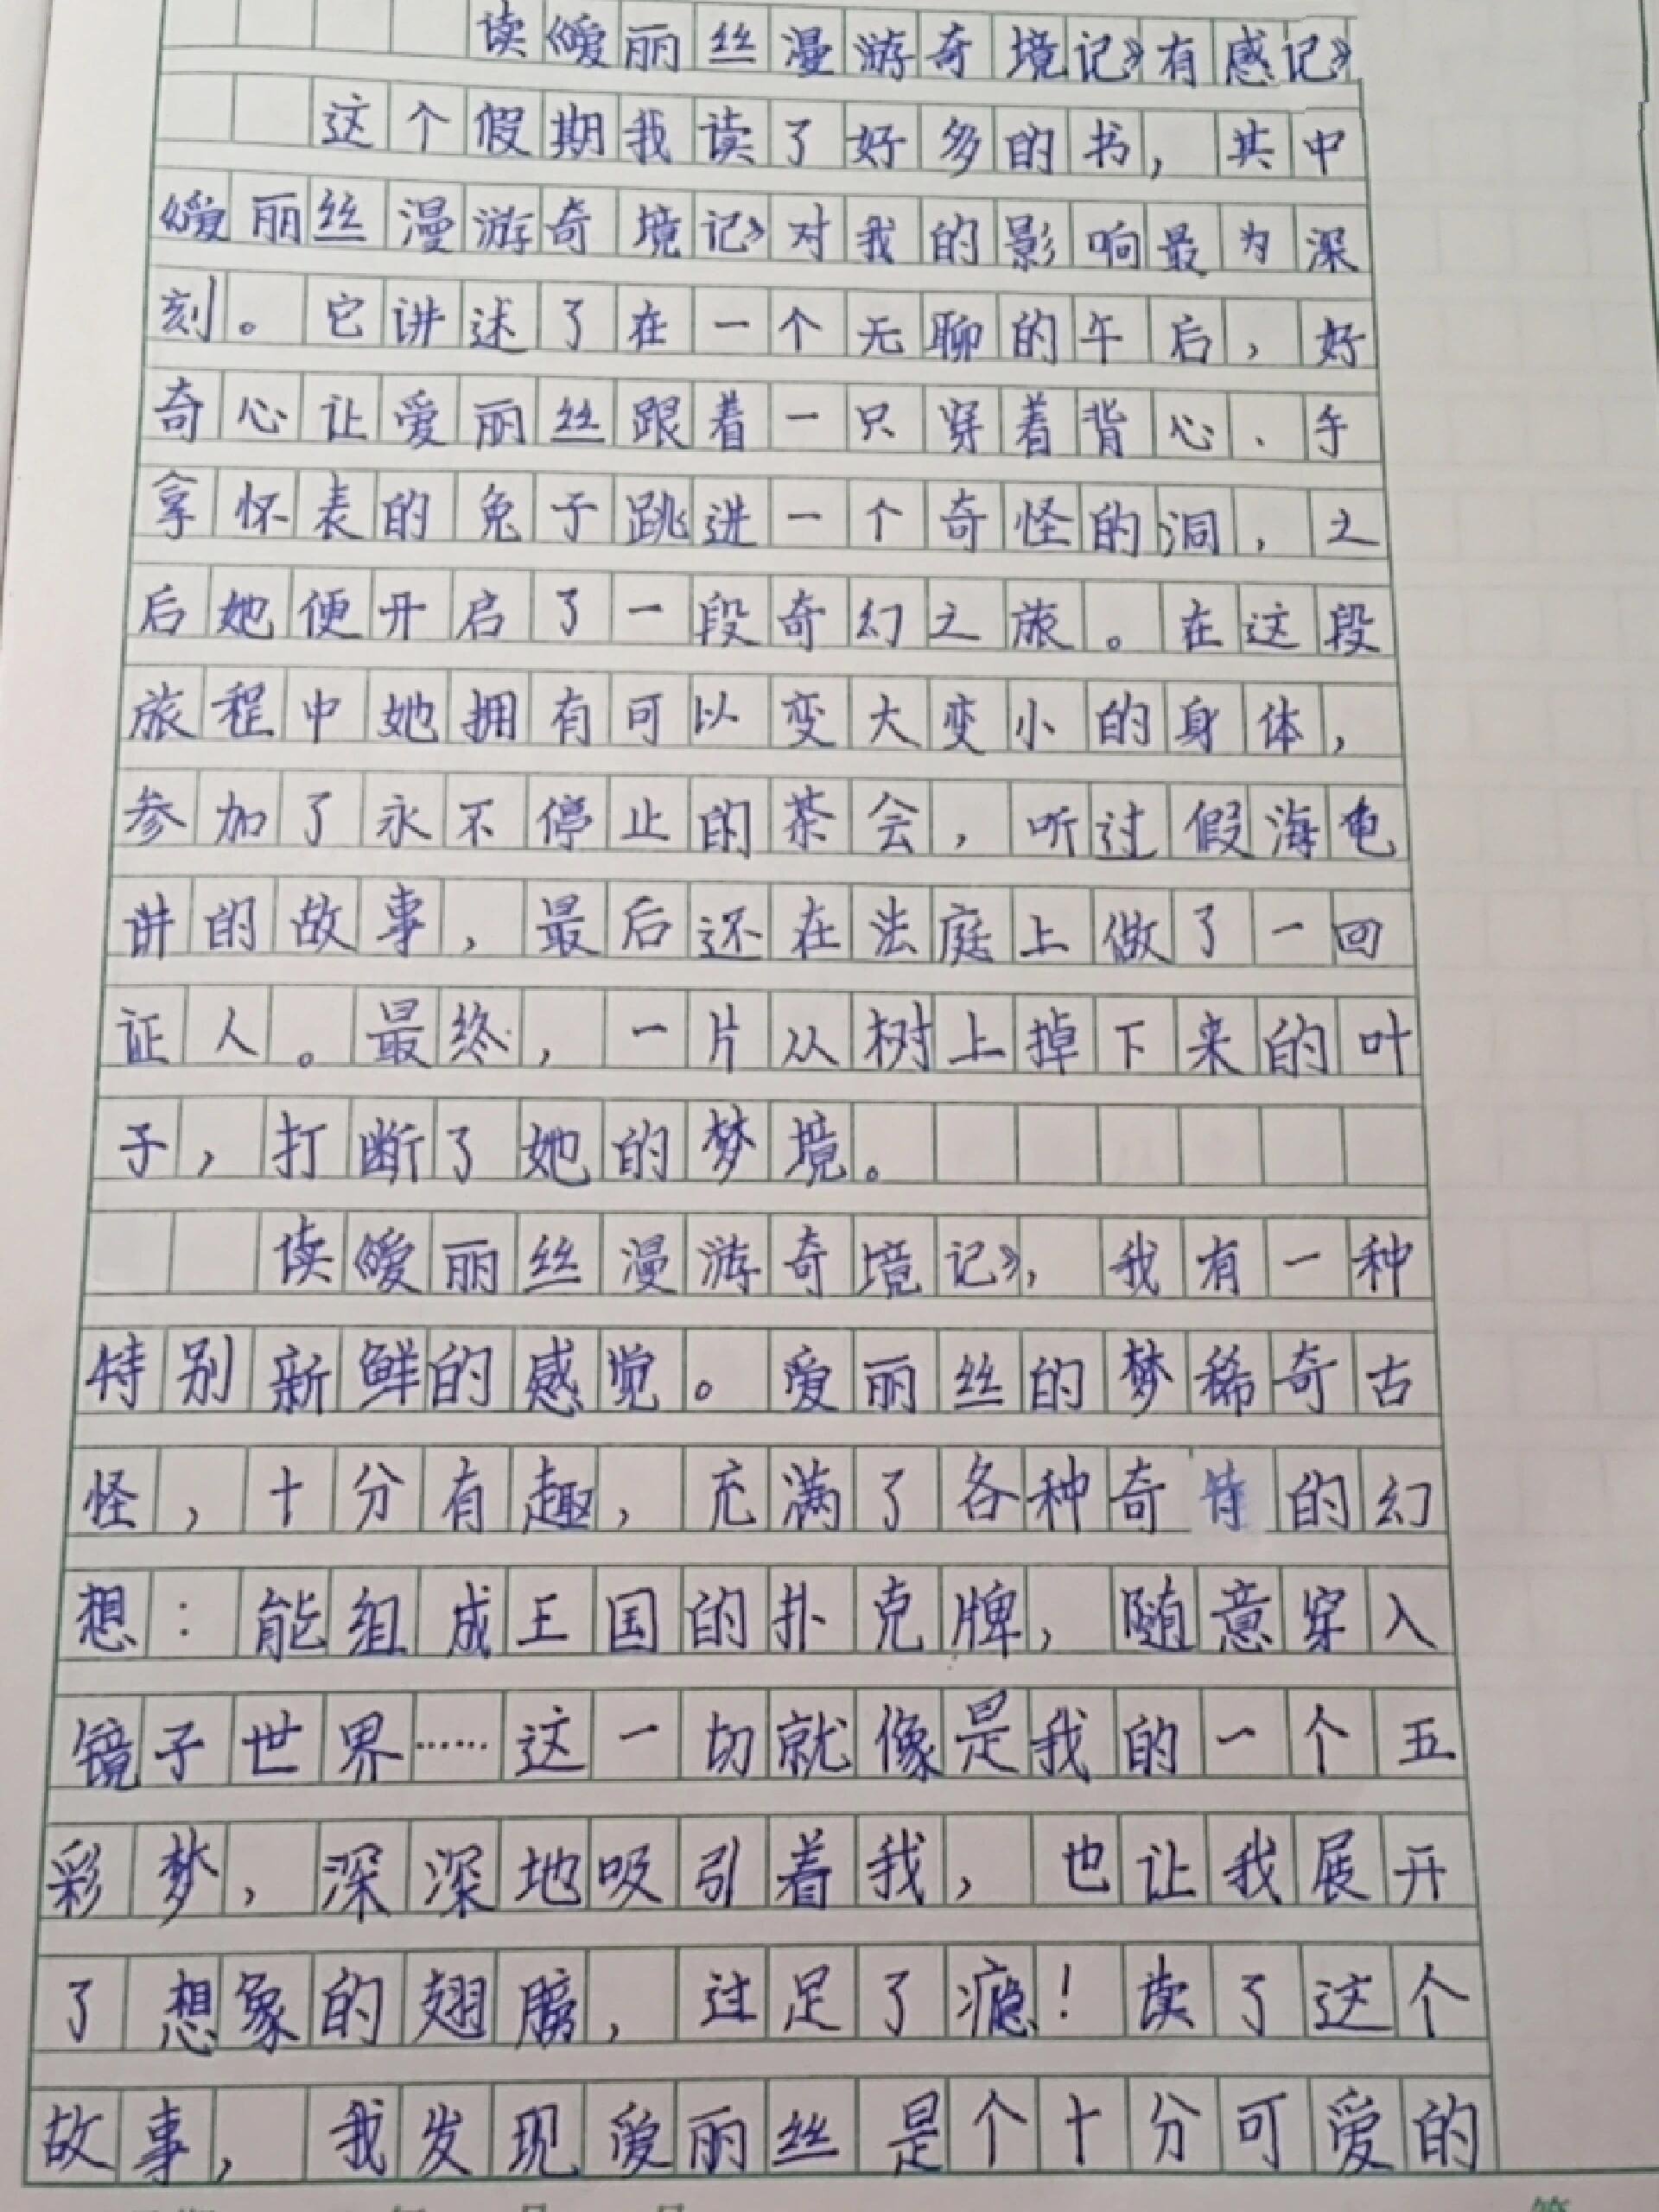 读《爱丽丝漫游奇境记》有感记》
这个假期我读了好多的书，其中
《爱丽丝漫游奇境记》对我的影响最为深
刻。它讲述了在一个无聊的午后，好
奇心让爱丽丝跟着一只穿着背心、手
拿怀表的兔子跳进一个奇怪的洞，之
后她便开启了一段奇幻之旅。在这段
旅程中她拥有可以变大变小的身体，
参加了永不停止的茶会，听过假海龟
讲的故事，最后还在法庭上做了一回
证人。最终，一片从树上掉下来的叶
子，打断了她的梦境。
读《爱丽丝漫游奇境记》，我有一种
特别新鲜的感觉。爱丽丝的梦稀奇古
怪，十分有趣，充满了各种奇特的幻
想：能组成王国的扑克牌，随意穿入
镜子世界……这一切就像是我的一个五
彩梦，深深地吸引着我，也让我展开
了想象的翅膀，过足了瘾！读了这个
故事，我发现爱丽丝是个十分可爱的